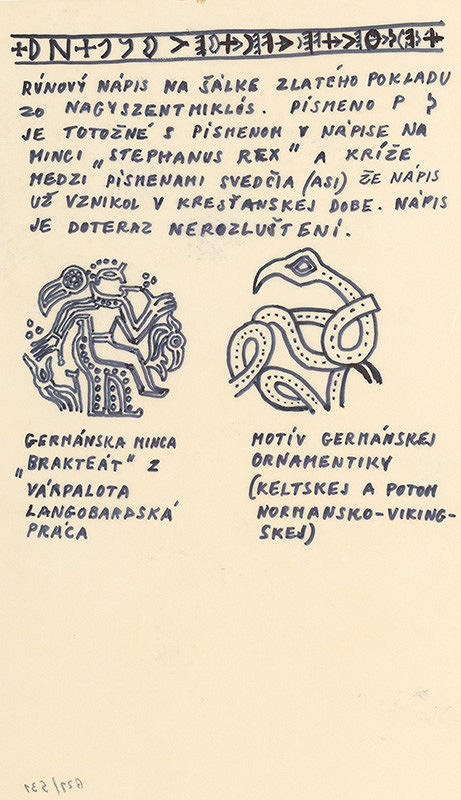 RÚNOVÝ NÁPIS NA ŠÁLKE ZLATÉHO POKLADU
ZO NAGYSZENTMIKLÓS. PÍSMENO P
JE TOTOŽNÉ S PÍSMENOM V NÁPISE NA
MINCI „STEPHANUS REX" A KRÍŽE
MEDZI PÍSMENAMI SVEDČIA (ASI) ŽE NÁPIS
UŽ VZNIKOL V KRESŤANSKEJ DOBE. NÁPIS
JE DOTERAZ NEROZLUŠTENÍ.
GERMÁNSKA MINCA
„BRAKTEÁT" Z
VÁRPALOTA
LANGOBARDSKÁ
PRÁCA
MOTÍV GERMÁNSKEJ
ORNAMENTIKY
(KELTSKEJ A POTOM
NORMANSKO-VIKING-
SKEJ)